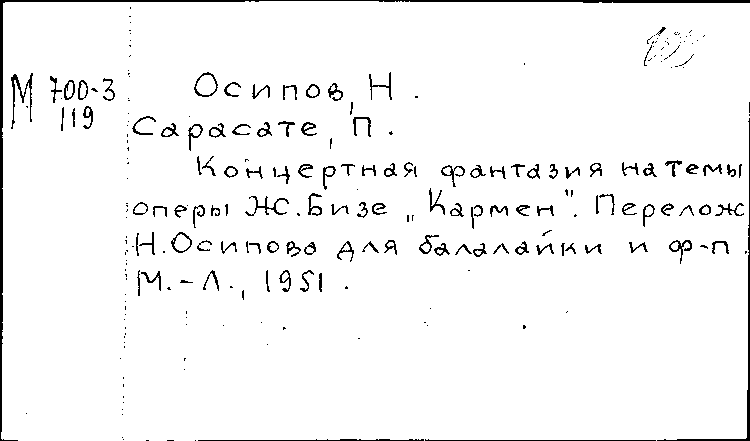 М 700-3
119
Осипов, Н.
Сарасате, П.
Концертная фантазия на темы
оперы Ж.Бизе „Кармен". Перелож
Н.Осипова для балалайки и ф-п.
М.-Л., 1951.